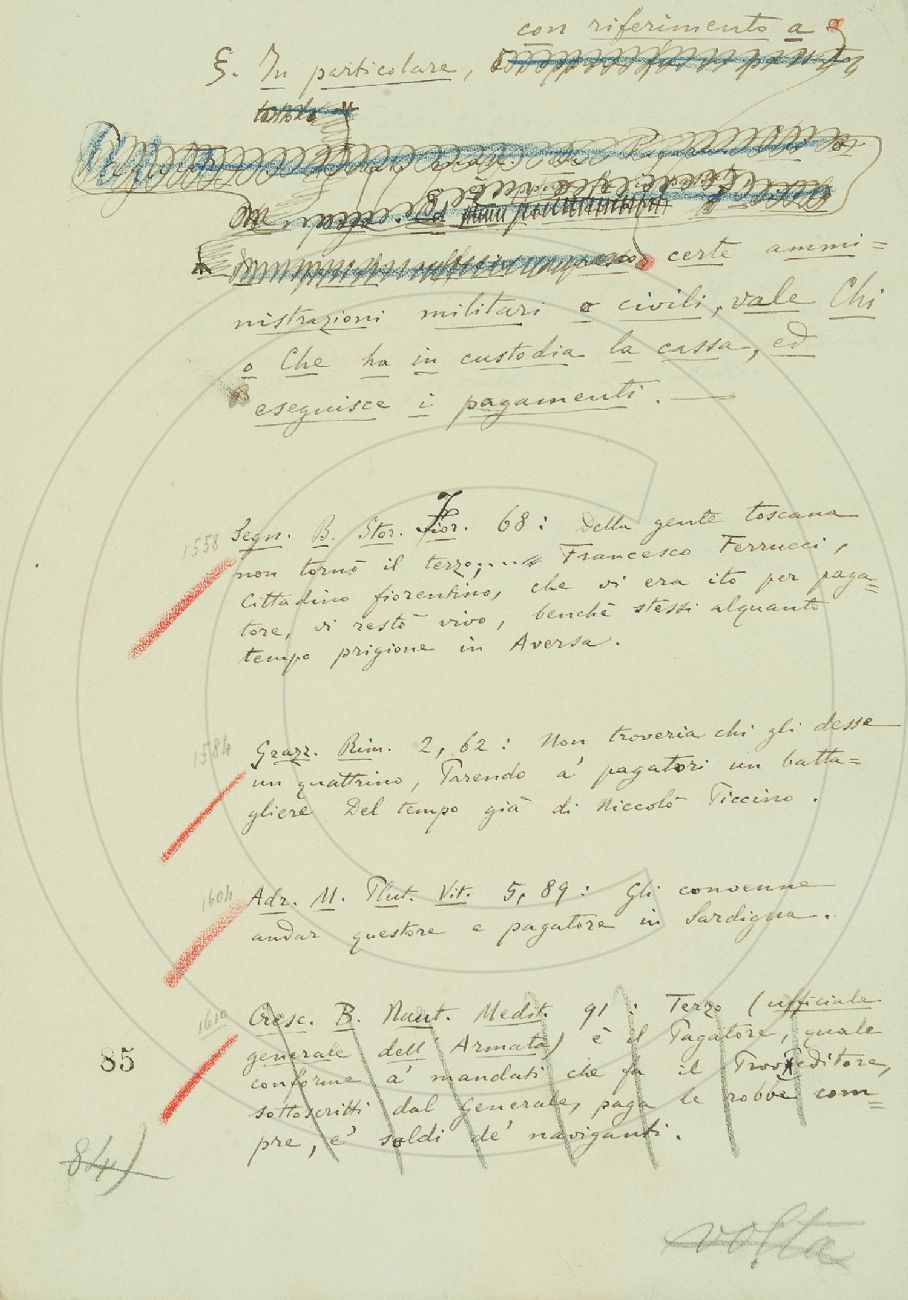 con riferimento a
§. In particolare,
certe ammi=
nistrazioni militari o civili, vale Chi
o Che ha in custodia la cassa, ed
eseguisce i pagamenti. —
1558 Segn. B. Stor. Fior. 68: Della gente toscana
non tornò il terzo;.... Francesco Ferrucci,
Cittadino fiorentino, che vi era ito per paga=
tore, vi restò vivo, benchè stessi alquanto
tempo prigione in Aversa.
1584 Grazz. Rim. 2, 62: Non troveria chi gli desse
un quattrino, Parendo a' pagatori un batta=
gliere Del tempo già di Niccolò Piccino.
1604 Adr. M. Plut. Vit. 5, 89: Gli convenne
andar questore e pagatore in Sardigna.
1610 Cresc. B. Naut. Medit. 91: Terzo (ufficiale
generale dell'Armata) è il Pagatore, quale
conforme a' mandati che fa il Proveditore,
sottoscritti dal Generale, paga le robbe com=
pre, e' soldi de' naviganti.
85
84)
volta